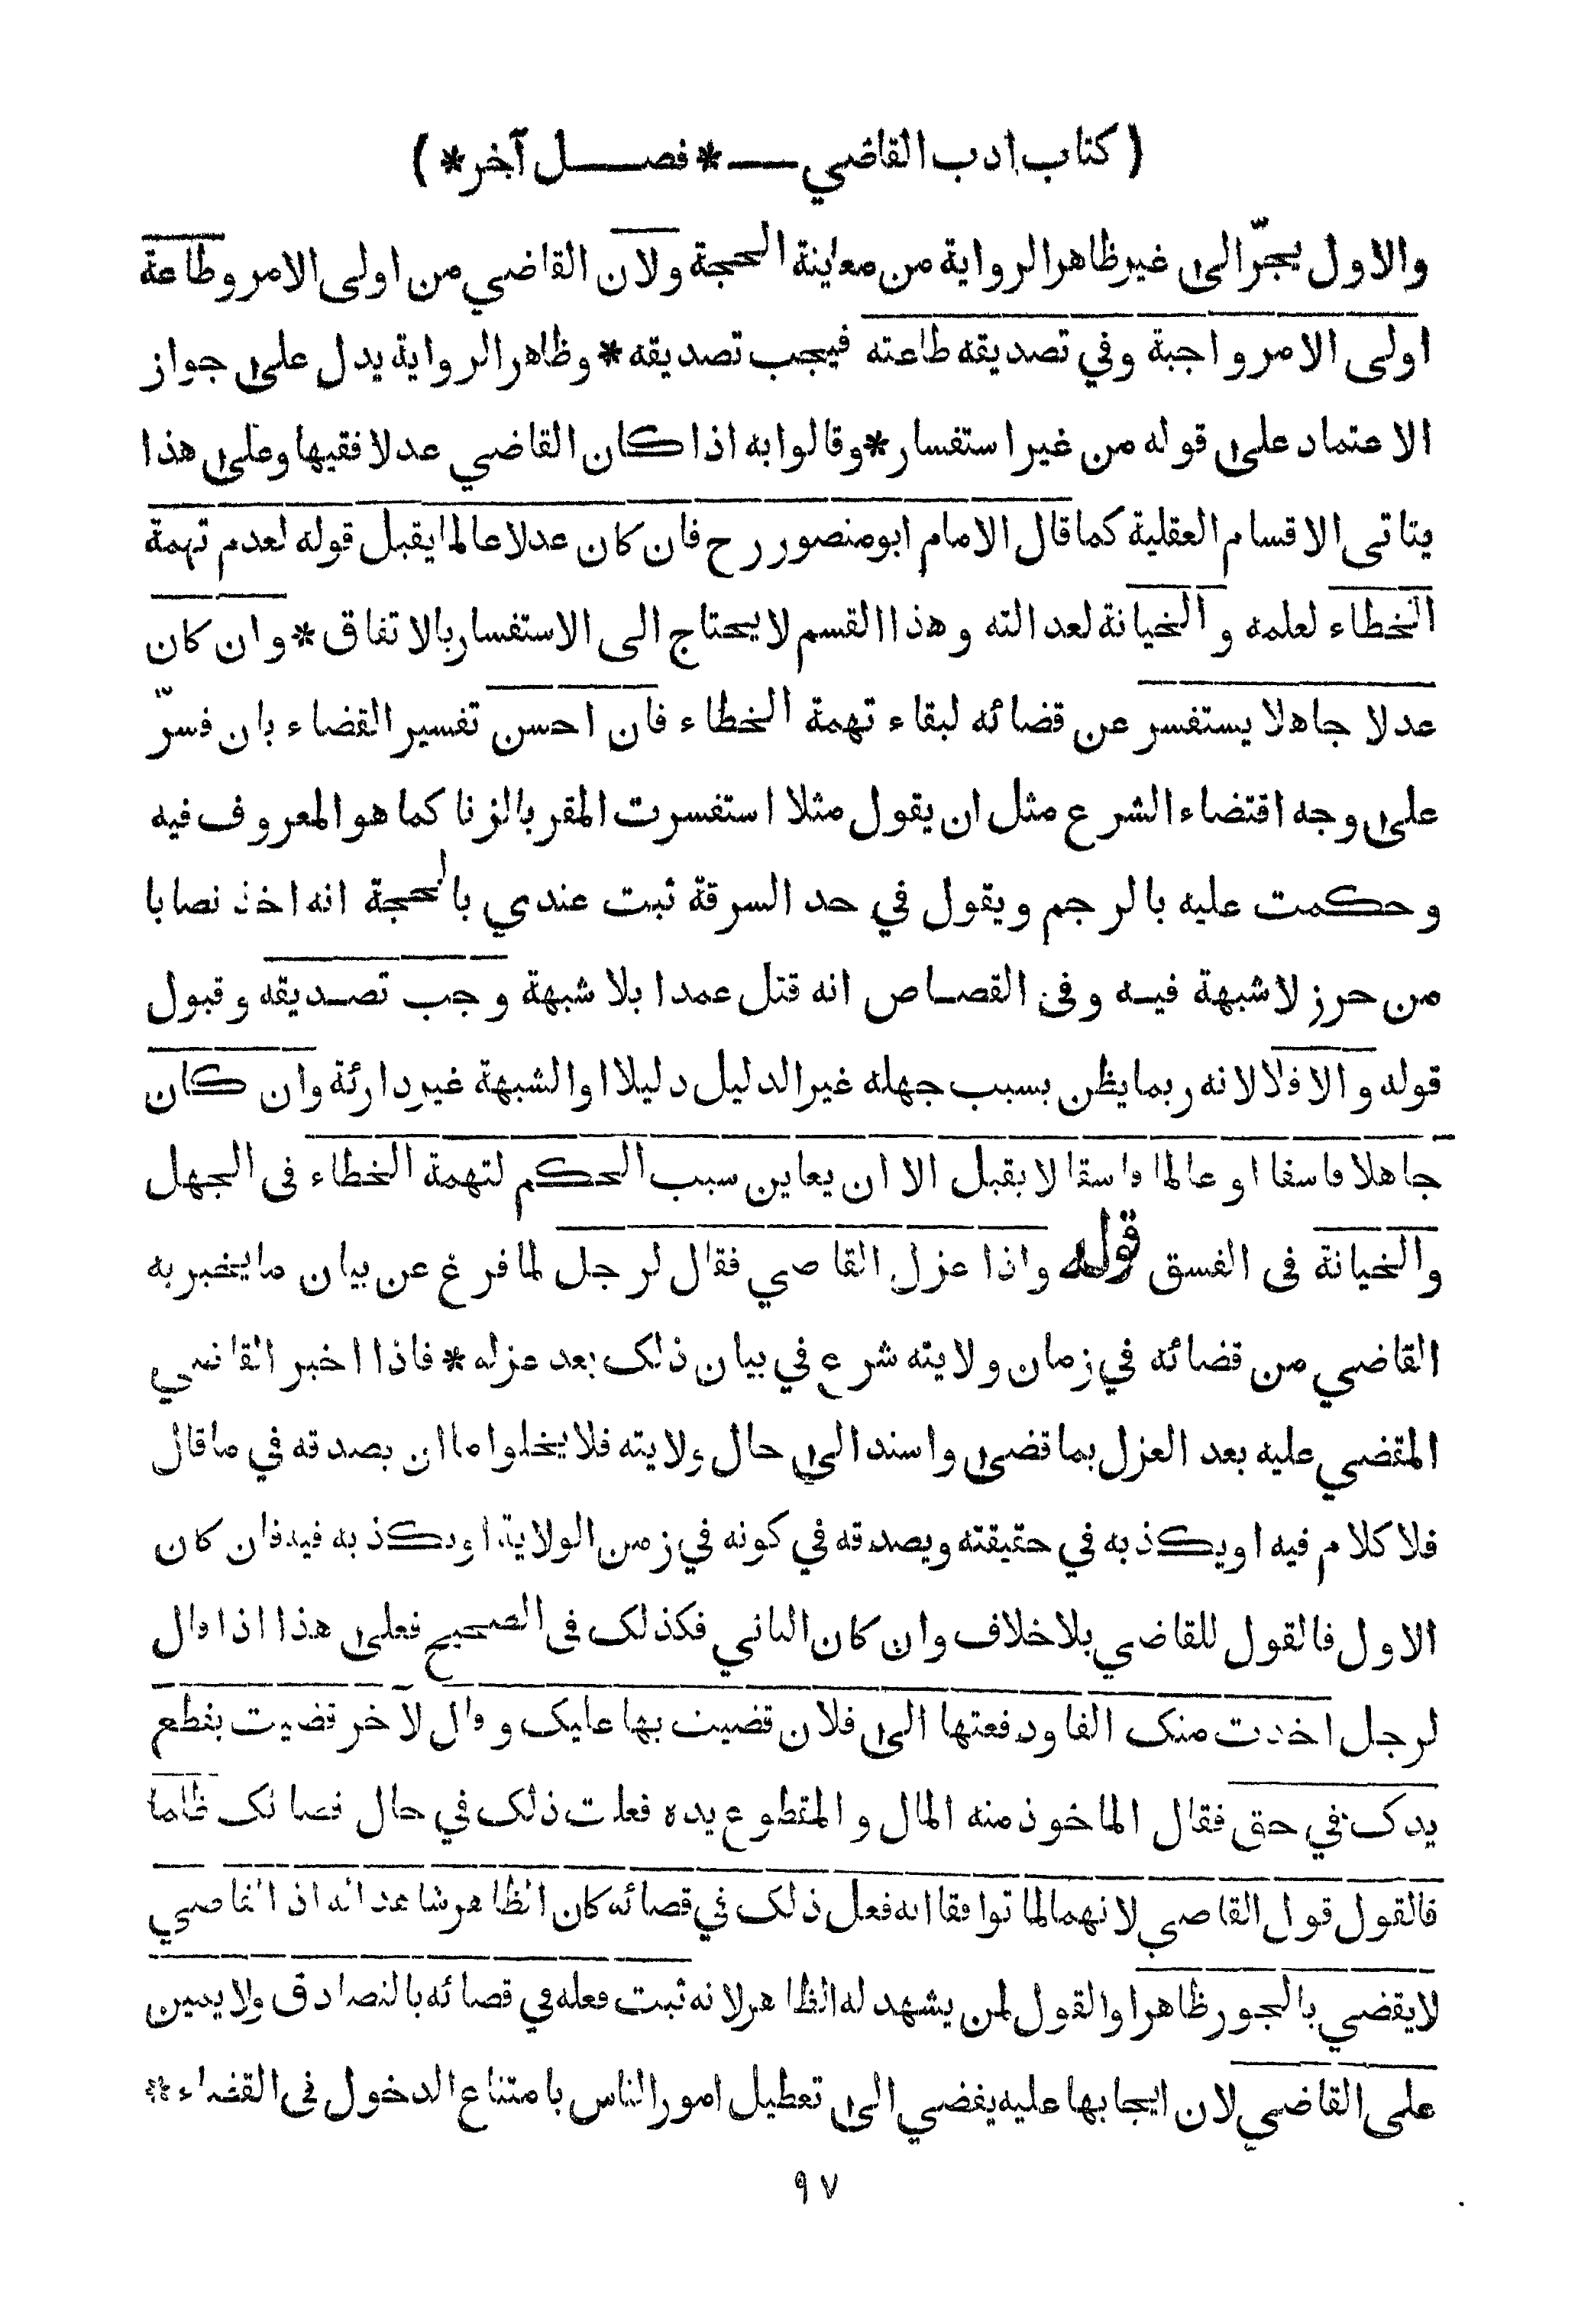 ( كتاب ادب القاضي — * فصل آخر * )
والاول يجرّ الى غير ظاهر الرواية من معاينة الحجة ولان القاضي من اولى الامر وطاعة
اولى الامر واجبة وفي تصديقه طاعته فيجب تصديقه * وظاهر الرواية يدل على جواز
الاعتماد على قوله من غير استفسار * وقالوا به اذا كان القاضي عدلا فقيها وعلى هذا
يتاتى الاقسام العقلية كما قال الامام ابو منصور رح فان كان عدلا عالما يقبل قوله لعدم تهمة
الخطاء لعلمه والخيانة لعدالته وهذا القسم لا يحتاج الى الاستفسار بالاتفاق * وان كان
عدلا جاهلا يستفسر عن قضائه لبقاء تهمة الخطاء فان احسن تفسير القضاء بان فسرّ
على وجه اقتضاء الشرع مثل ان يقول مثلا استفسرت المقر بالزنا كما هو المعروف فيه
وحكمت عليه بالرجم ويقول في حد السرقة ثبت عندي بالحجة انه اخذ نصابا
من حرز لا شبهة فيه وفى القصاص انه قتل عمدا بلا شبهة وجب تصديقه وقبول
قوله والا فلا لانه ربما يظن بسبب جهله غير الدليل دليلا او الشبهة غير دارئة وان كان
جاهلا فاسقا او عالما فاسقا لا يقبل الا ان يعاين سبب الحكم لتهمة الخطاء فى الجهل
والخيانة فى الفسق قوله واذا عزل القاضي فقال لرجل لما فرغ عن بيان ما يخبر به
القاضي من قضائه في زمان ولايته شرع في بيان ذلك بعد عزله * فاذا اخبر القاضي
المقضي عليه بعد العزل بما قضى واسند الى حال ولايته فلا يخلوا ما ان يصدقه في ما قال
فلا كلام فيه او يكذبه في حقيقته ويصدقه في كونه في زمن الولاية او يكذبه فيه فان كان
الاول فالقول للقاضي بلا خلاف وان كان الثاني فكذلك فى الصحيح فعلى هذا اذا قال
لرجل اخذت منك الفا ودفعتها الى فلان قضيت بها عليك وقال لآخر قضيت بقطع
يدك في حق فقال الماخوذ منه المال والمقطوع يده فعلت ذلك في حال قضائك ظلما
فالقول قول القاضي لانهما لما توافقا انه فعل ذلك في قضائه كان الظاهر شاهدا له اذ القاضي
لا يقضي بالجور ظاهرا والقول لمن يشهد له الظاهر لانه ثبت فعله في قضائه بالتصادق ولا يمين
على القاضي لان ايجابها عليه يفضي الى تعطيل امور الناس بامتناع الدخول فى القضاء *
٩٧